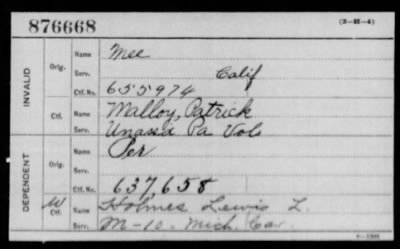 876668
(3-H-4)
INVALID
Orig. Name Mee
Serv. Calif
Ctf. No. 655974
Ctf. Name Malloy, Patrick
Serv. Unassd Pa Vols
DEPENDENT
Orig. Name Per
Serv.
Ctf. No. 637,658
W Ctf. Name Holmes Lewis L.
Serv. M-10. Mich. Cav.